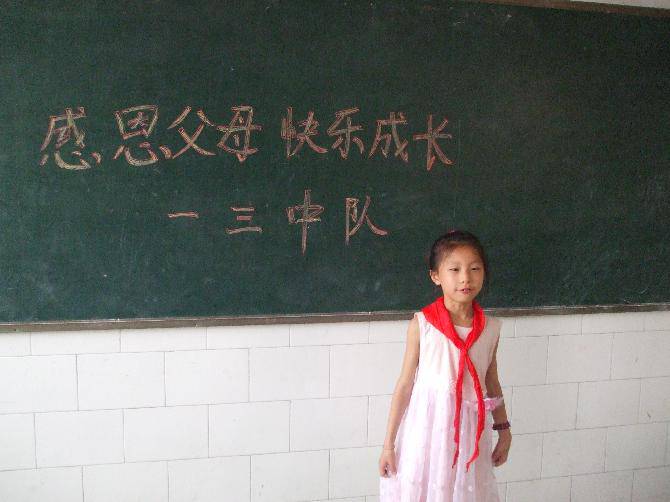 感恩父母 快乐成长
一三中队